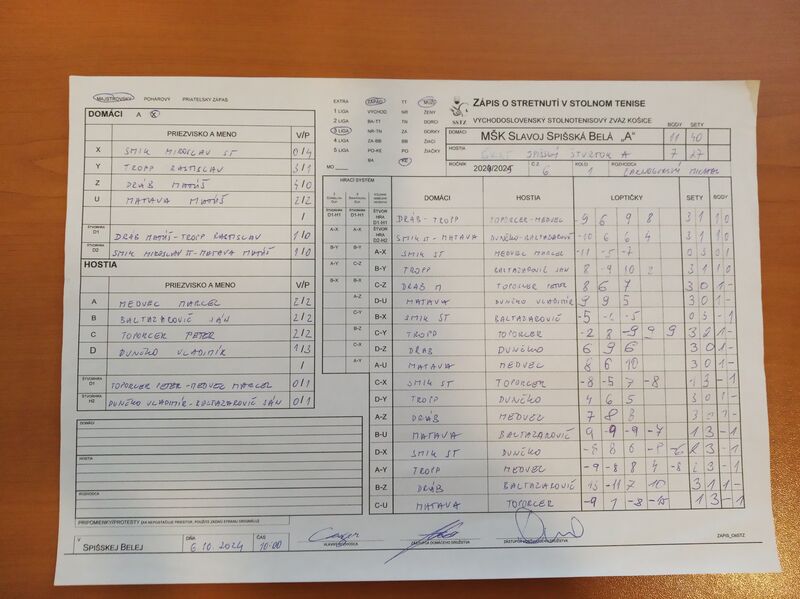 MAJSTROVSKÝ POHÁROVÝ PRIATEĽSKÝ ZÁPAS
DOMÁCI A X
PRIEZVISKO A MENO V/P
X SMIK MIROSLAV ST 0/4
Y TROPP RASTISLAV 3/1
Z DRÁB MATÚŠ 4/0
U MATAVA MATÚŠ 2/2
/
ŠTVORHRA D1 DRÁB MATÚŠ-TROPP RASTISLAV 1/0
ŠTVORHRA D2 SMIK MIROSLAV ST-MATAVA MATÚŠ 1/0
HOSTIA
PRIEZVISKO A MENO V/P
A MEDVEC MARCEL 2/2
B BALTAZAROVIČ JÁN 2/2
C TOPORCER PETER 2/2
D DUNČKO VLADIMÍR 1/3
/
ŠTVORHRA D1 TOPORCER PETER-MEDVEC MARCEL 0/1
ŠTVORHRA H2 DUNČKO VLADIMÍR-BALTAZAROVIČ JÁN 0/1
DOMÁCI
HOSTIA
ROZHODCA
PRIPOMIENKY/PROTESTY (AK NEPOSTAČUJE PRIESTOR, POUŽITE ZADNÚ STRANU ORIGINÁLU)
V SPIŠSKEJ BELEJ DŇA 6.10.2024 ČAS 10:00
EXTRA ZÁPAD TT MUŽI
1 LIGA VÝCHOD NR ŽENY
2 LIGA BA-TT TN DORCI
3 LIGA NR-TN TA DORKY
4 LIGA ZA-BB BB ŽIACI
5 LIGA PO-KE PO ŽIAČKY
MO BA KE
SSTZ
ZÁPIS O STRETNUTÍ V STOLNOM TENISE
VÝCHODOSLOVENSKÝ STOLNOTENISOVÝ ZVÄZ KOŠICE
BODY SETY
DOMÁCI MŠK SLAVOJ SPIŠSKÁ BELÁ „A" 11 40
HOSTIA SPIŠSKÝ ŠTVRTOK A 7 27
ROČNÍK Č.Z. 6 KOLO 1 ROZHODCA
HRACÍ SYSTÉM
DOMÁCI HOSTIA LOPTIČKY SETY BODY
D1-H1 DRÁB-TROPP TOPORCER-MEDVEC -9 6 9 8 3 1 1 0
D2-H2 SMIK ST-MATAVA DUNČKO-BALTAZAROVIČ -10 6 6 4 3 1 1 0
A-X SMIK ST MEDVEC MARCEL -11 -5 -7 0 3 0 1
B-Y TROPP BALTAZAROVIČ JÁN 8 -9 10 2 3 1 1 0
C-Z DRÁB M TOPORCER PETER 8 6 7 3 0 1 -
D-U MATAVA DUNČKO VLADIMÍR 9 9 5 3 0 1 -
B-X SMIK ST BALTAZAROVIČ 0 3 - 1
C-Y TROPP TOPORCER -2 8 -9 9 9 3 2 1 -
D-Z DRÁB DUNČKO 6 9 6 3 0 1 -
A-U MATAVA MEDVEC 8 6 10 3 0 1 -
C-X SMIK ST TOPORCER -8 -5 7 -8 1 3 - 1
D-Y TROPP DUNČKO 4 6 5 3 0 1 -
A-Z DRÁB MEDVEC 7 8 8 3 0 1 -
B-U MATAVA BALTAZAROVIČ 9 -9 -9 -7 1 3 - 1
D-X SMIK ST DUNČKO -8 8 6 -8 3 - 1
A-Y TROPP MEDVEC -9 -8 8 4 -8 2 3 - 1
B-Z DRÁB BALTAZAROVIČ 13 -11 7 10 3 1 1 -
C-U MATAVA TOPORCER -9 1 -8 -15 1 3 - 1
HLAVNÝ ROZHODCA ZÁSTUPCA DOMÁCEHO DRUŽSTVA ZÁSTUPCA HOSŤUJÚCEHO DRUŽSTVA ZÁPIS_OKSTZ